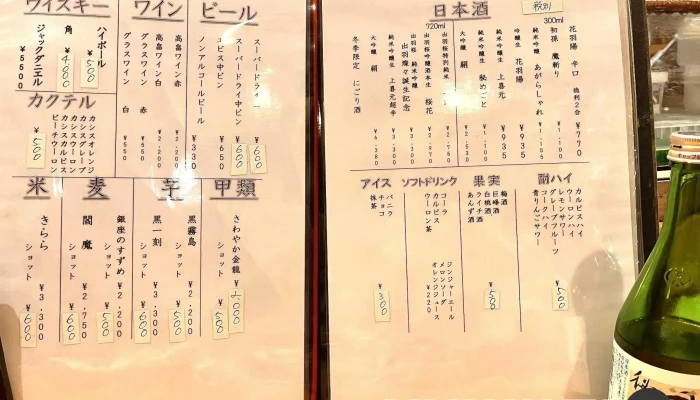 日本酒
税別
花羽陽 辛口 徳利2合 ¥770
300ml
初孫 魔斬り ¥1,100
純米吟醸 あがらしゃれ
吟醸生 花羽陽 ¥935
純米吟醸生 上喜元 ¥935
純米吟醸生 秘めごと
大吟醸 絹
720ml
冬季限定 にごり酒
酎ハイ
カルピスハイ
ウーロンハイ
レモンサワー
グレープフルーツ
コークハイ
青りんごサワー
¥500
果実
梅酒
巨峰酒
白桃酒
ライチ酒
あんず酒
¥500
ソフトドリンク
コーラ
カルピス
ウーロン茶
ジンジャーエール
メロンソーダ
オレンジジュース
¥220
アイス
バニラ
チョコ
抹茶
¥300
ビール
スーパードライ ¥600
スーパードライ中ビン ¥600
ヱビス中ビン ¥650
ノンアルコールビール ¥330
ワイン
高畠ワイン赤 ¥2,200
高畠ワイン白 ¥2,200
グラスワイン 赤 ¥550
グラスワイン 白 ¥550
ウイスキー
ハイボール ¥500
角
ジャックダニエル ¥5500
カクテル
カシスオレンジ
カシスグレープ
カシスウーロン
カシスカルピス
ピーチウーロン
¥500
甲類
さわやか金龍 ¥2,000
ショット ¥500
芋
黒霧島 ¥2,200
ショット ¥500
黒一刻 ¥3,300
ショット ¥600
麦
銀座のすずめ ¥2,200
ショット ¥500
閻魔 ¥2,750
ショット ¥600
米
きらら ¥3,300
ショット ¥600